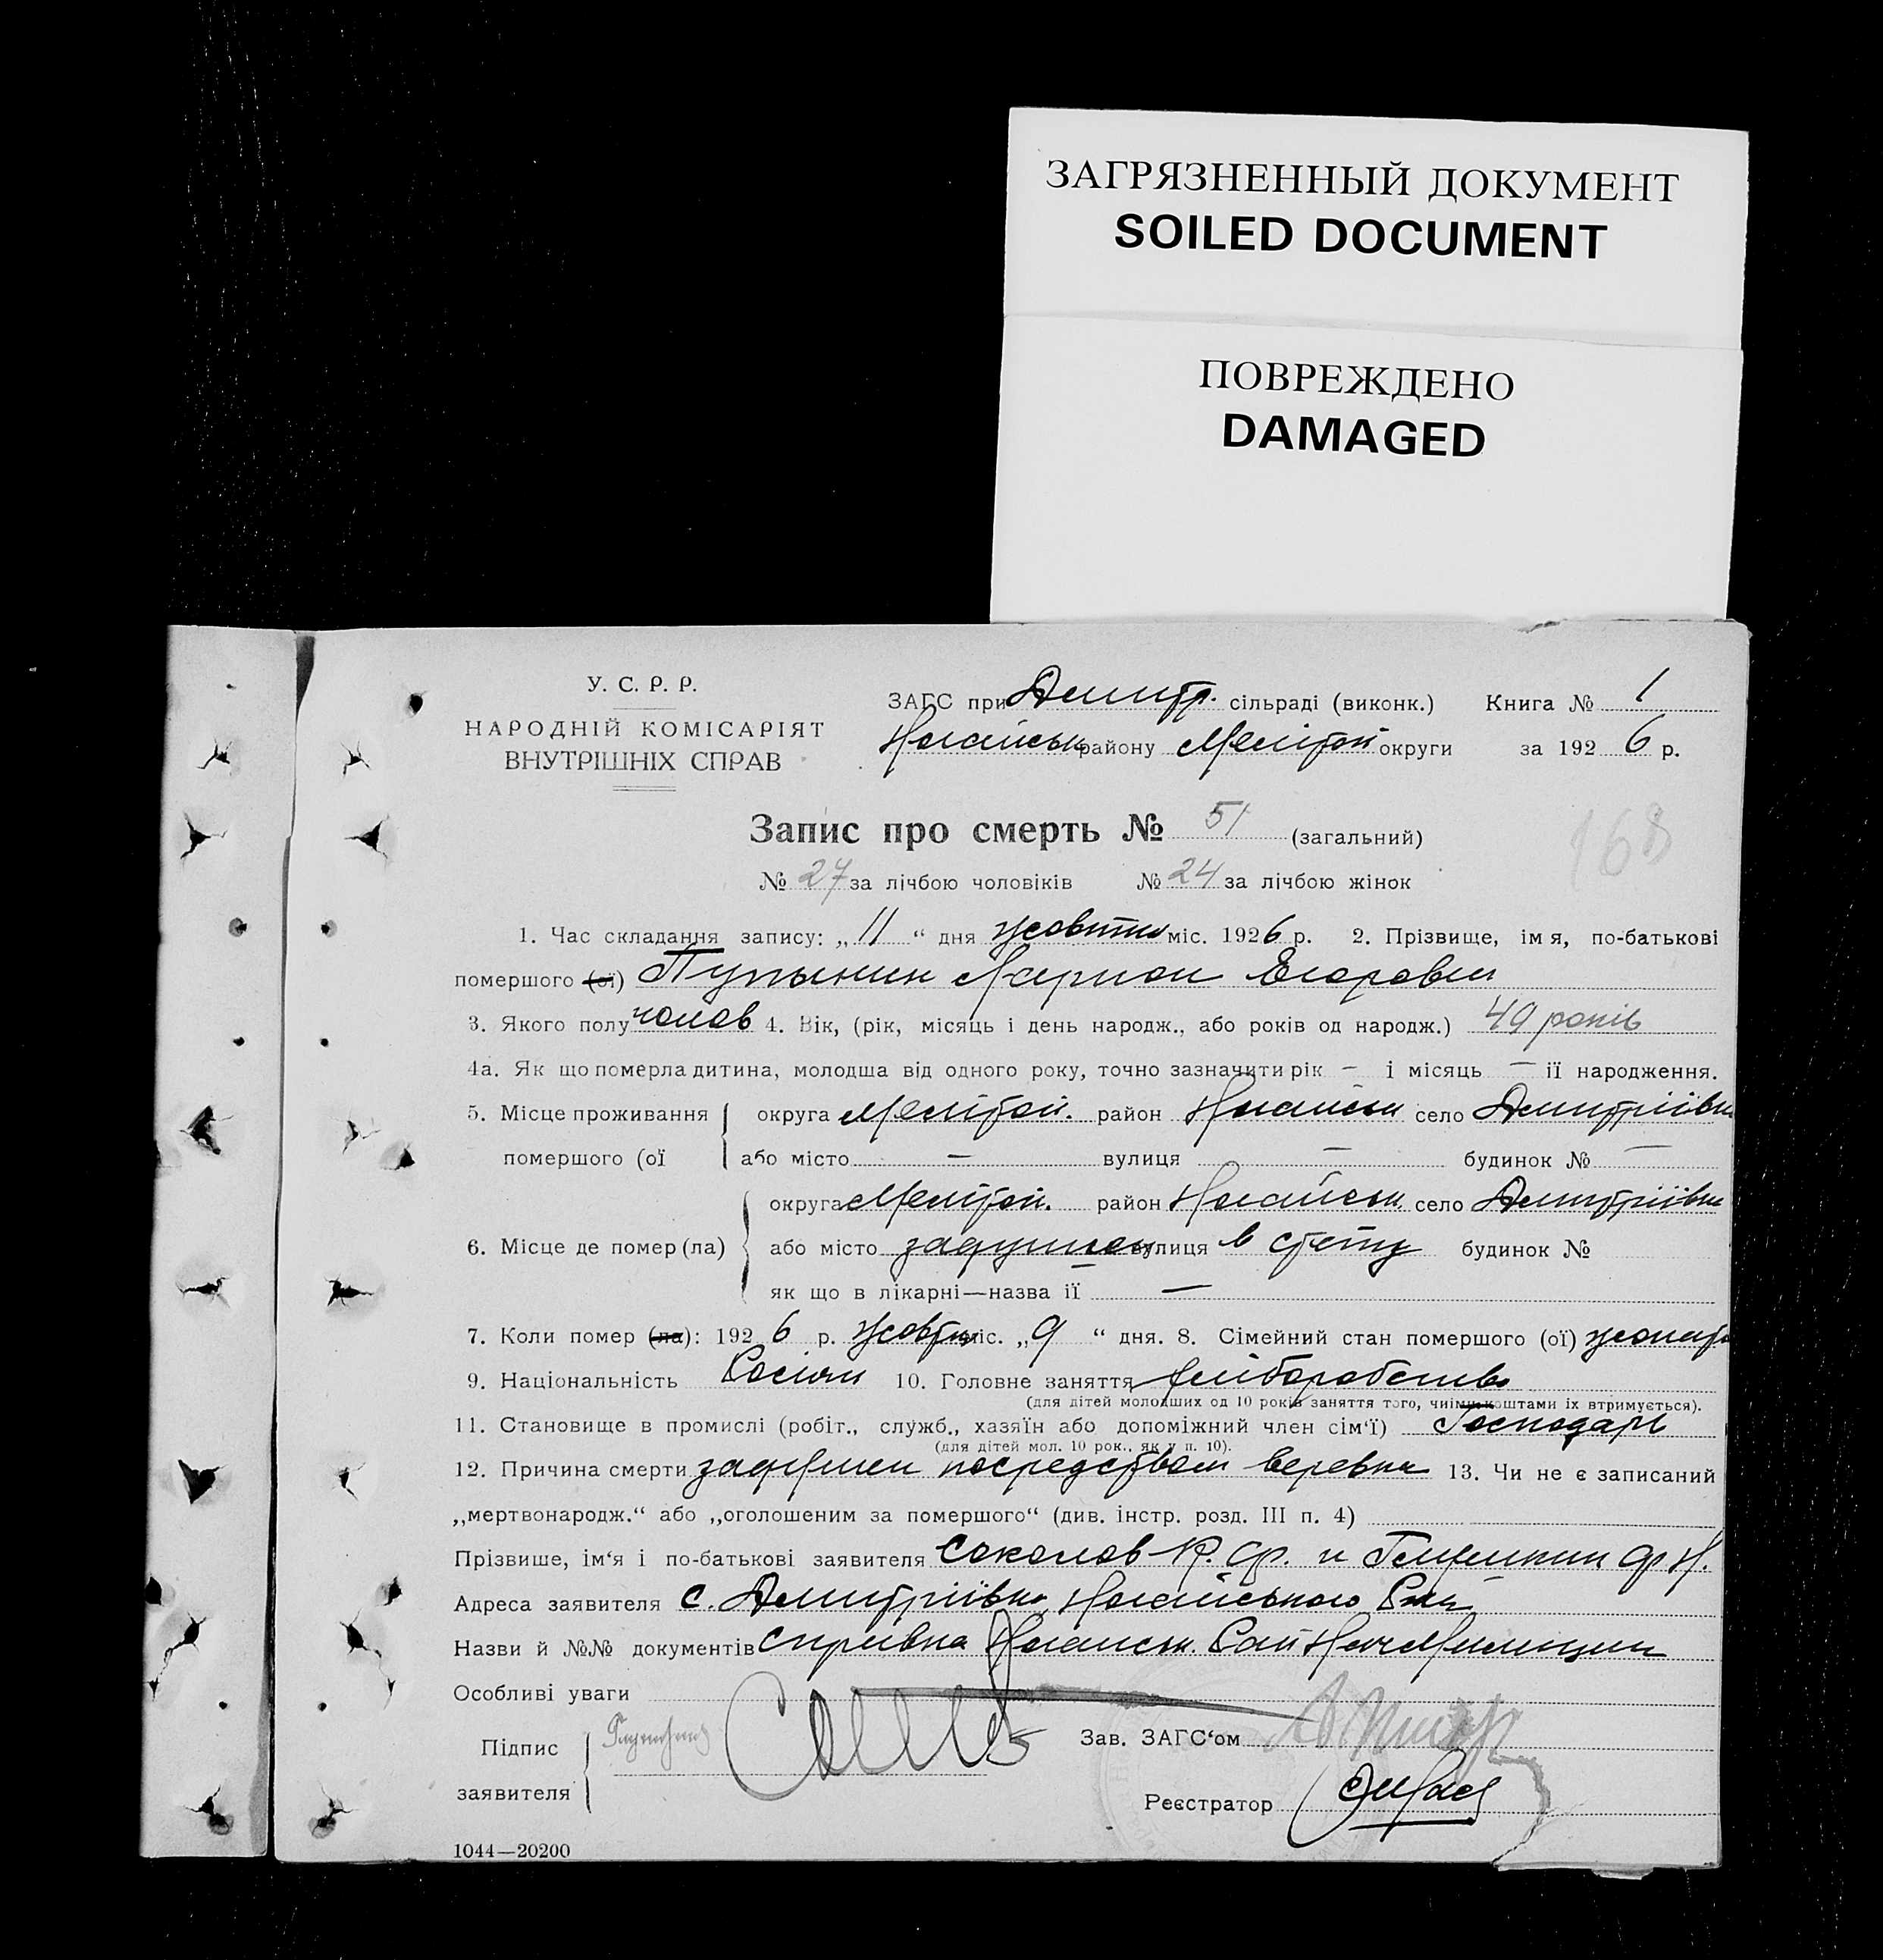 ЗАГРЯЗНЕННЫЙ ДОКУМЕНТ
SOILED DOCUMENT
ПОВРЕЖДЕНО
DAMAGED
У. С. Р. Р.
НАРОДНІЙ КОМІСАРІЯТ
ВНУТРІШНІХ СПРАВ
ЗАГС при Дмитр. сільраді (виконк.) Книга № 1
Ногайськ району Мелітоп округи за 1926 р.
Запис про смерть № 51 (загальний)
168
№ 27 за лічбою чоловіків № 24 за лічбою жінок
1. Час складання запису: „11“ дня жовтня міс. 1926 р. 2. Прізвище, імя, по-батькові
помершого (ої) Пупынин Ларион Егорович
3. Якого полу чолов 4. Вік, (рік, місяць і день народж., або років од народж.) 49 років
4а. Як що померла дитина, молодша від одного року, точно зазначити рік – і місяць – її народження.
5. Місце проживання округа Мелітоп. район Ногайськ село Дмитріївка
помершого (ої або місто — вулиця — будинок № —
округа Мелітоп. район Ногайськ. село Дмитріївка
6. Місце де помер (ла) або місто задушен вулиця в степу будинок №
як що в лікарні—назва її —
7. Коли помер (ла): 1926 р. жовтня міс. „9“ дня. 8. Сімейний стан помершого (ої)
9. Національність Росіян 10. Головне заняття хліборобство
(для дітей молодших од 10 років заняття того, чиїми коштами їх втримується).
11. Становище в промислі (робіт., служб., хазяїн або допоміжний член сім'ї) Господарь
(для дітей мол. 10 рок., як у п. 10).
12. Причина смерти задушен посредством веревки 13. Чи не є записаний
„мертвонародж.“ або „оголошеним за помершого“ (див. інстр. розд. III п. 4)
Прізвише, ім'я і по-батькові заявителя Соколов К. Ф. и Ф Н.
Адреса заявителя с. Дмитріївка Ногайського Рай
Назви й №№ документів справка Ногайськ. Рай Нач Милиции
Особливі уваги
Підпис
заявителя
Зав. ЗАГС'ом
Реєстратор
1044—20200